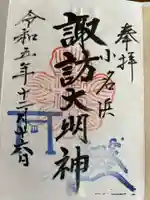 奉拝
小名浜
諏訪大明神
令和五年十二月廿六日